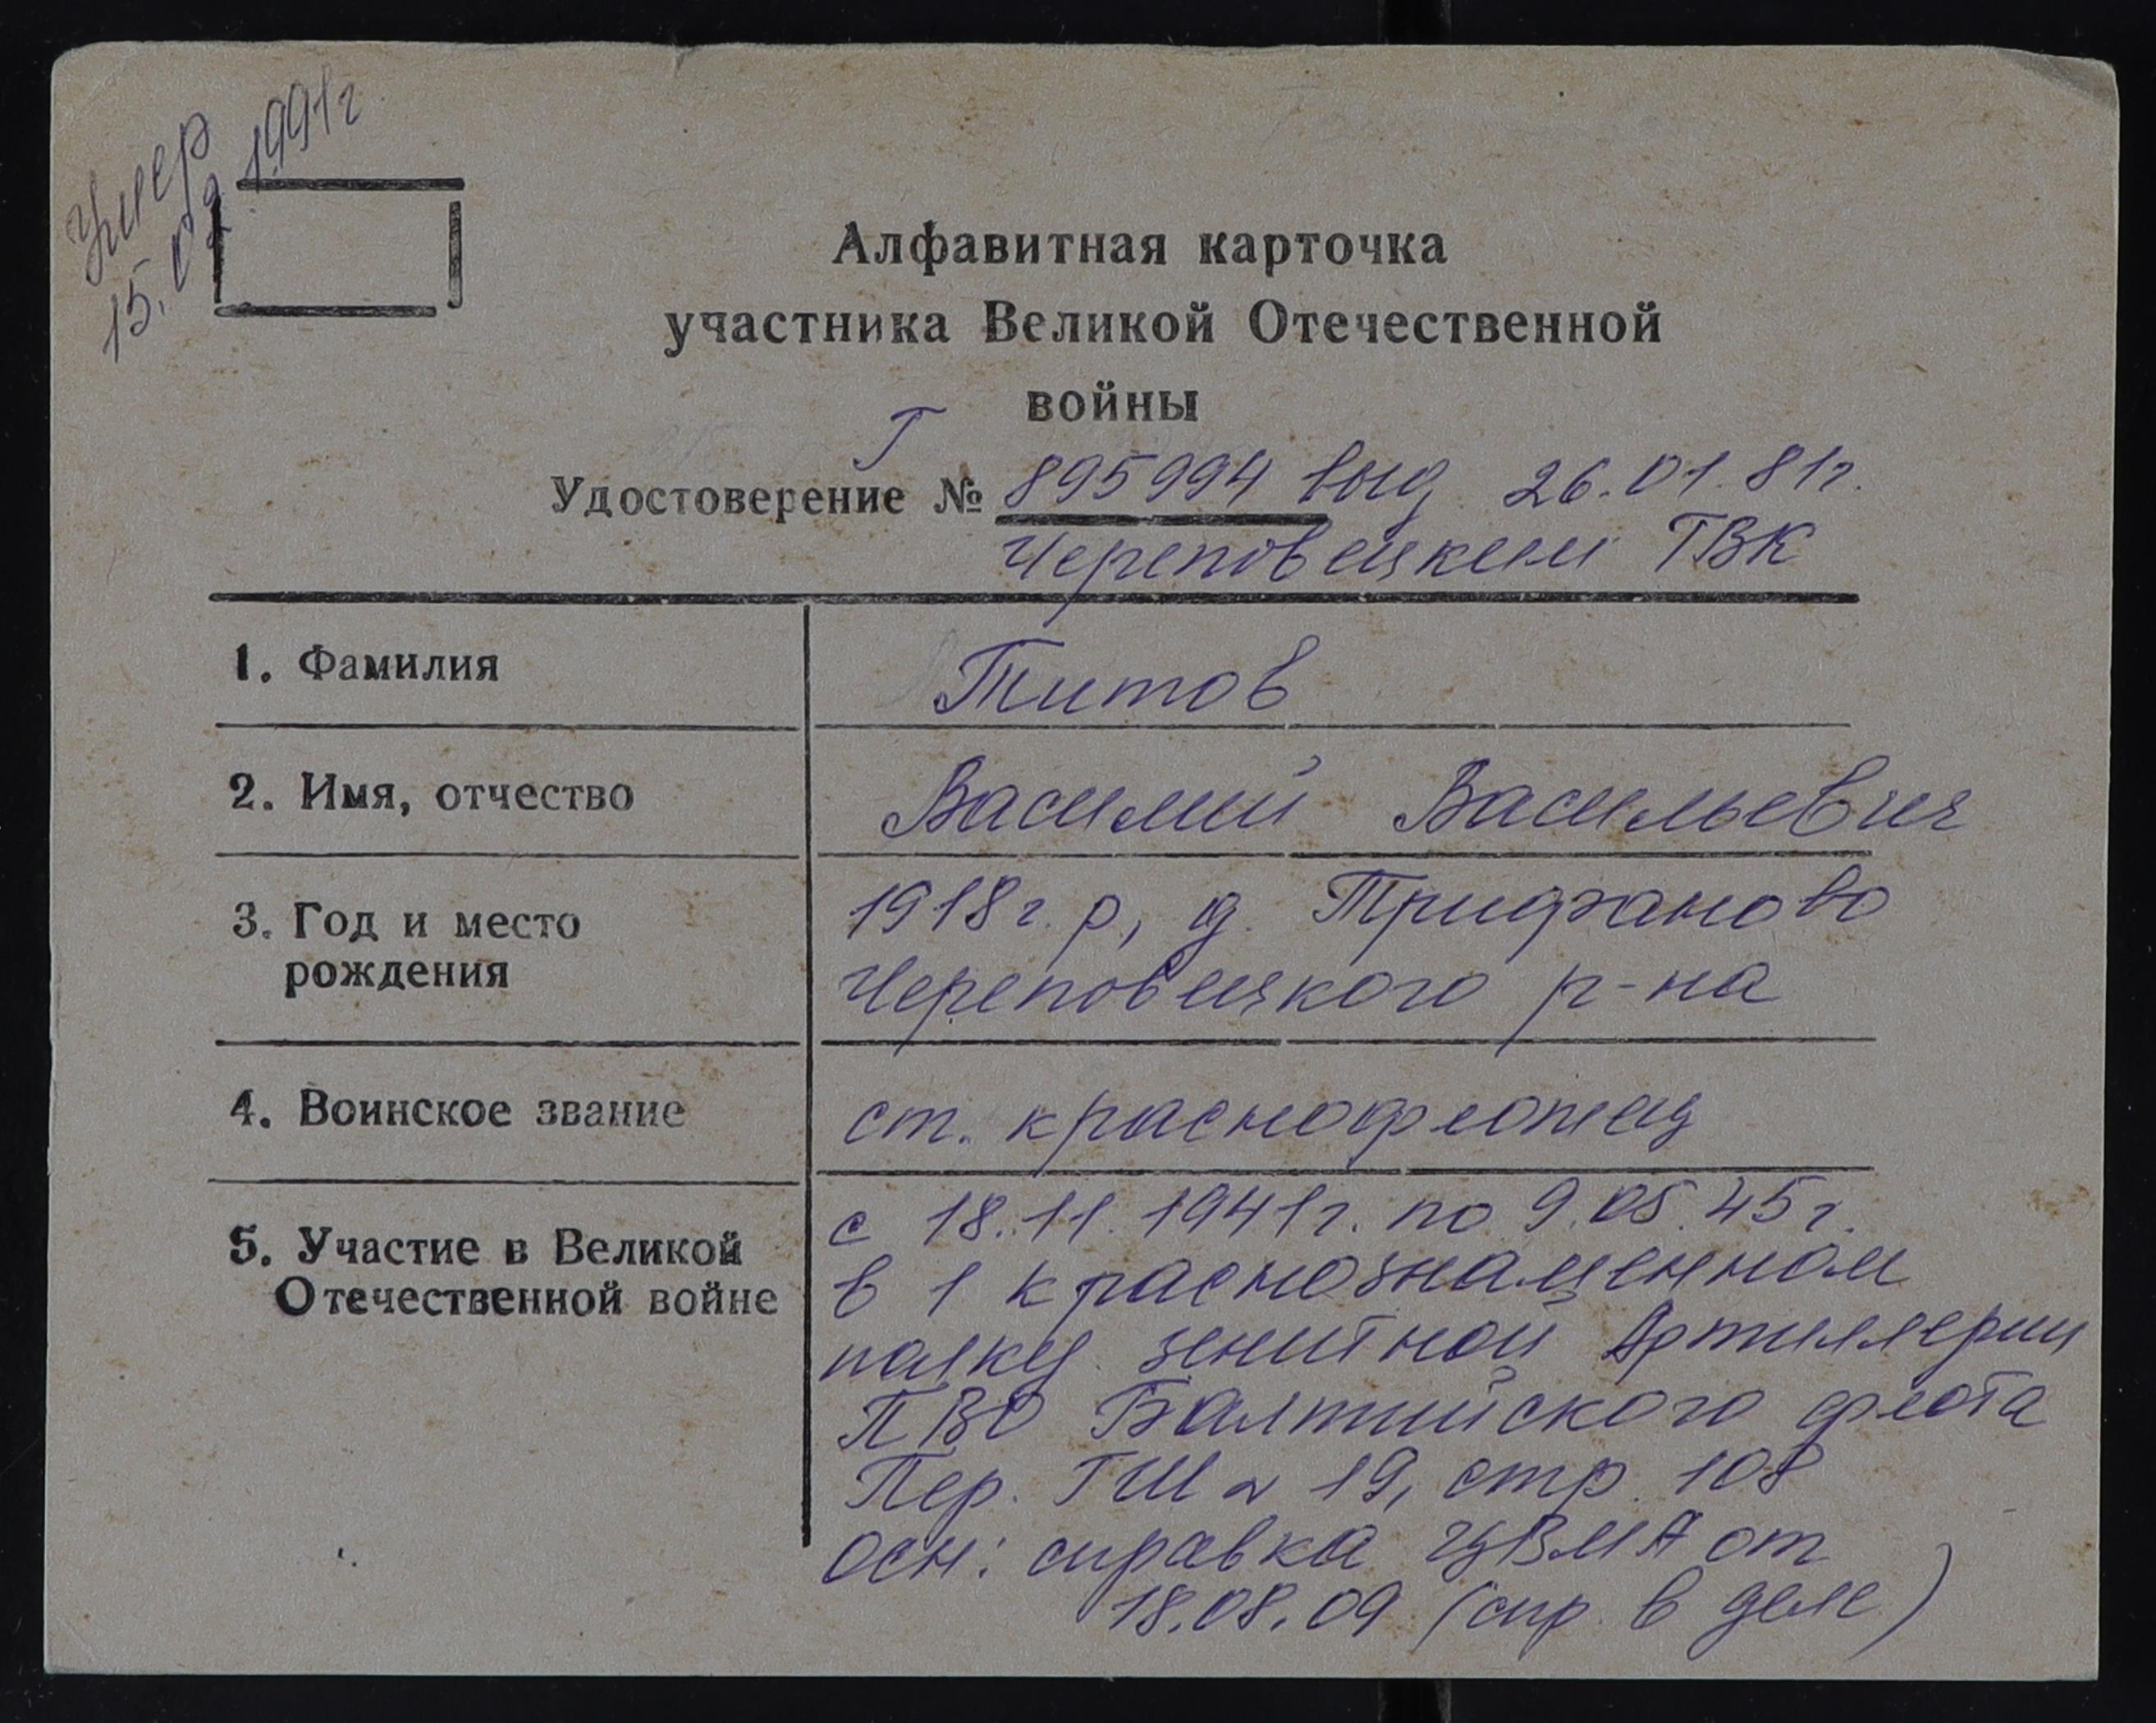 Умер
15.09.1991г
Алфавитная карточка
участника Великой Отечественной
войны
Удостоверение Г № 895994 выд. 26.01.81г.
Череповецким ГВК
1. Фамилия
Титов
2. Имя, отчество
Василий Васильевич
3. Год и место
рождения
1918г.р, д. Трифаново
Череповецкого р-на
4. Воинское звание
ст. краснофлотец
5. Участие в Великой
Отечественной войне
с 18.11.1941г. по 9.05.45г.
в 1 краснознаменном
полку зенитной Артиллерии
ПВО Балтийского флота
Пер. ГШ № 19, стр. 108
осн: справка ЦВМА от
18.08.09 (спр. в деле)